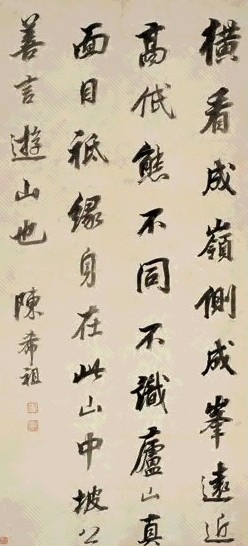 橫看成嶺側成峯遠近
高低態不同不識廬山真
面目祗緣身在此山中坡公
善言遊山也 陳希祖